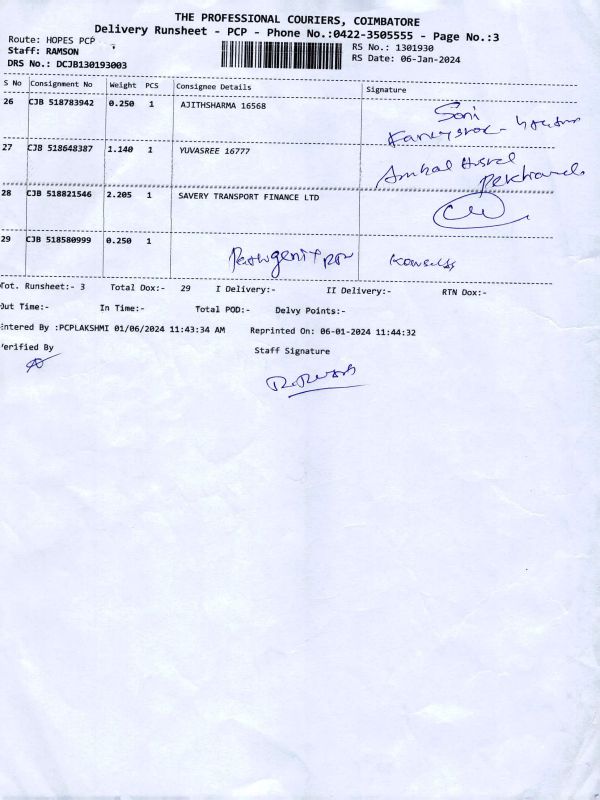 THE PROFESSIONAL COURIERS, COIMBATORE
Delivery Runsheet - PCP - Phone No.:0422-3505555 - Page No.:3
Route: HOPES PCP
RS No.: 1301930
Staff: RAMSON
RS Date: 06-Jan-2024
DRS No.: DCJB130193003
S No Consignment No Weight PCS Consignee Details Signature
26 CJB 518783942 0.250 1 AJITHSHARMA 16568
Soni
27 CJB 518648387 1.140 1 YUVASREE 16777
28 CJB 518821546 2.205 1 SAVERY TRANSPORT FINANCE LTD
29 CJB 518580999 0.250 1
Tot. Runsheet:- 3 Total Dox:- 29 I Delivery:- II Delivery:- RTN Dox:-
Out Time:- In Time:- Total POD:- Delvy Points:-
Entered By :PCPLAKSHMI 01/06/2024 11:43:34 AM Reprinted On: 06-01-2024 11:44:32
Verified By Staff Signature